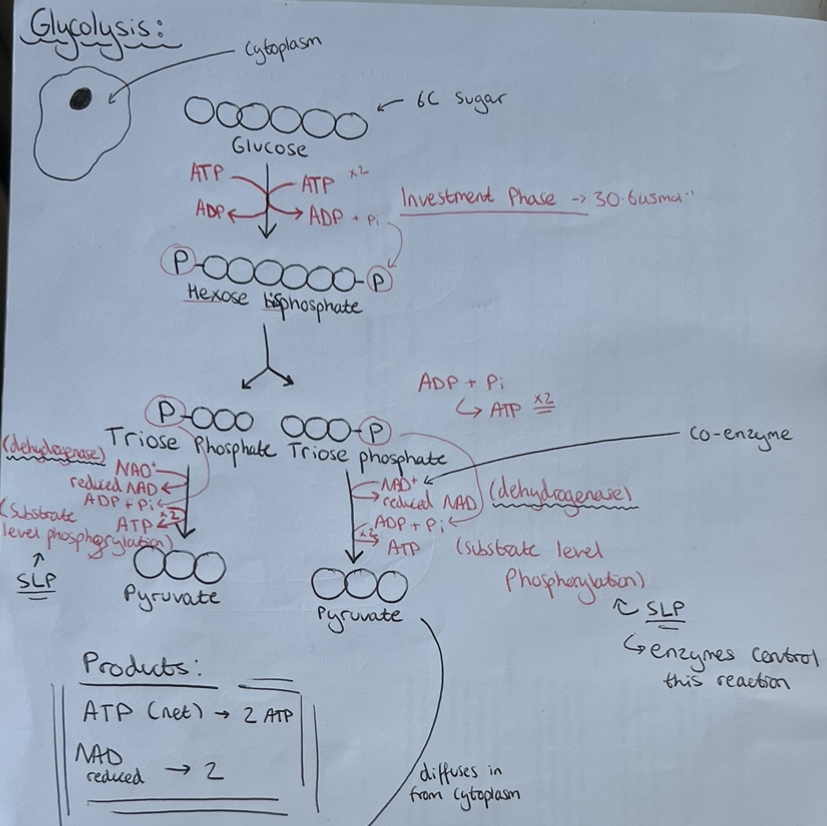 Glycolysis:
Cytoplasm
6C sugar
Glucose
ATP
ATP x2
ADP
ADP + Pi
Investment Phase →
P P
Hexose bisphosphate
ADP + Pi
↳ ATP x2
P P
Triose Phosphate Triose phosphate
co-enzyme
(dehydrogenase)
NAD+
reduced NAD
ADP + Pi
x2
ATP
(Substrate
level phosphorylation)
↑
SLP
NAD+
reduced NAD
(dehydrogenase)
ADP + Pi
x2
ATP
(Substrate level
Phosphorylation)
SLP
↳ enzymes control
this reaction
Pyruvate
Pyruvate
Products:
ATP (net) → 2 ATP
NAD
reduced → 2
diffuses in
from cytoplasm